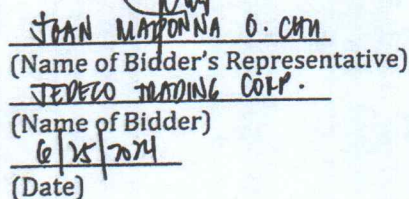 JOAN MADONNA O. CHU
(Name of Bidder's Representative)
JEDECO TRADING CORP.
(Name of Bidder)
6/25/2024
(Date)